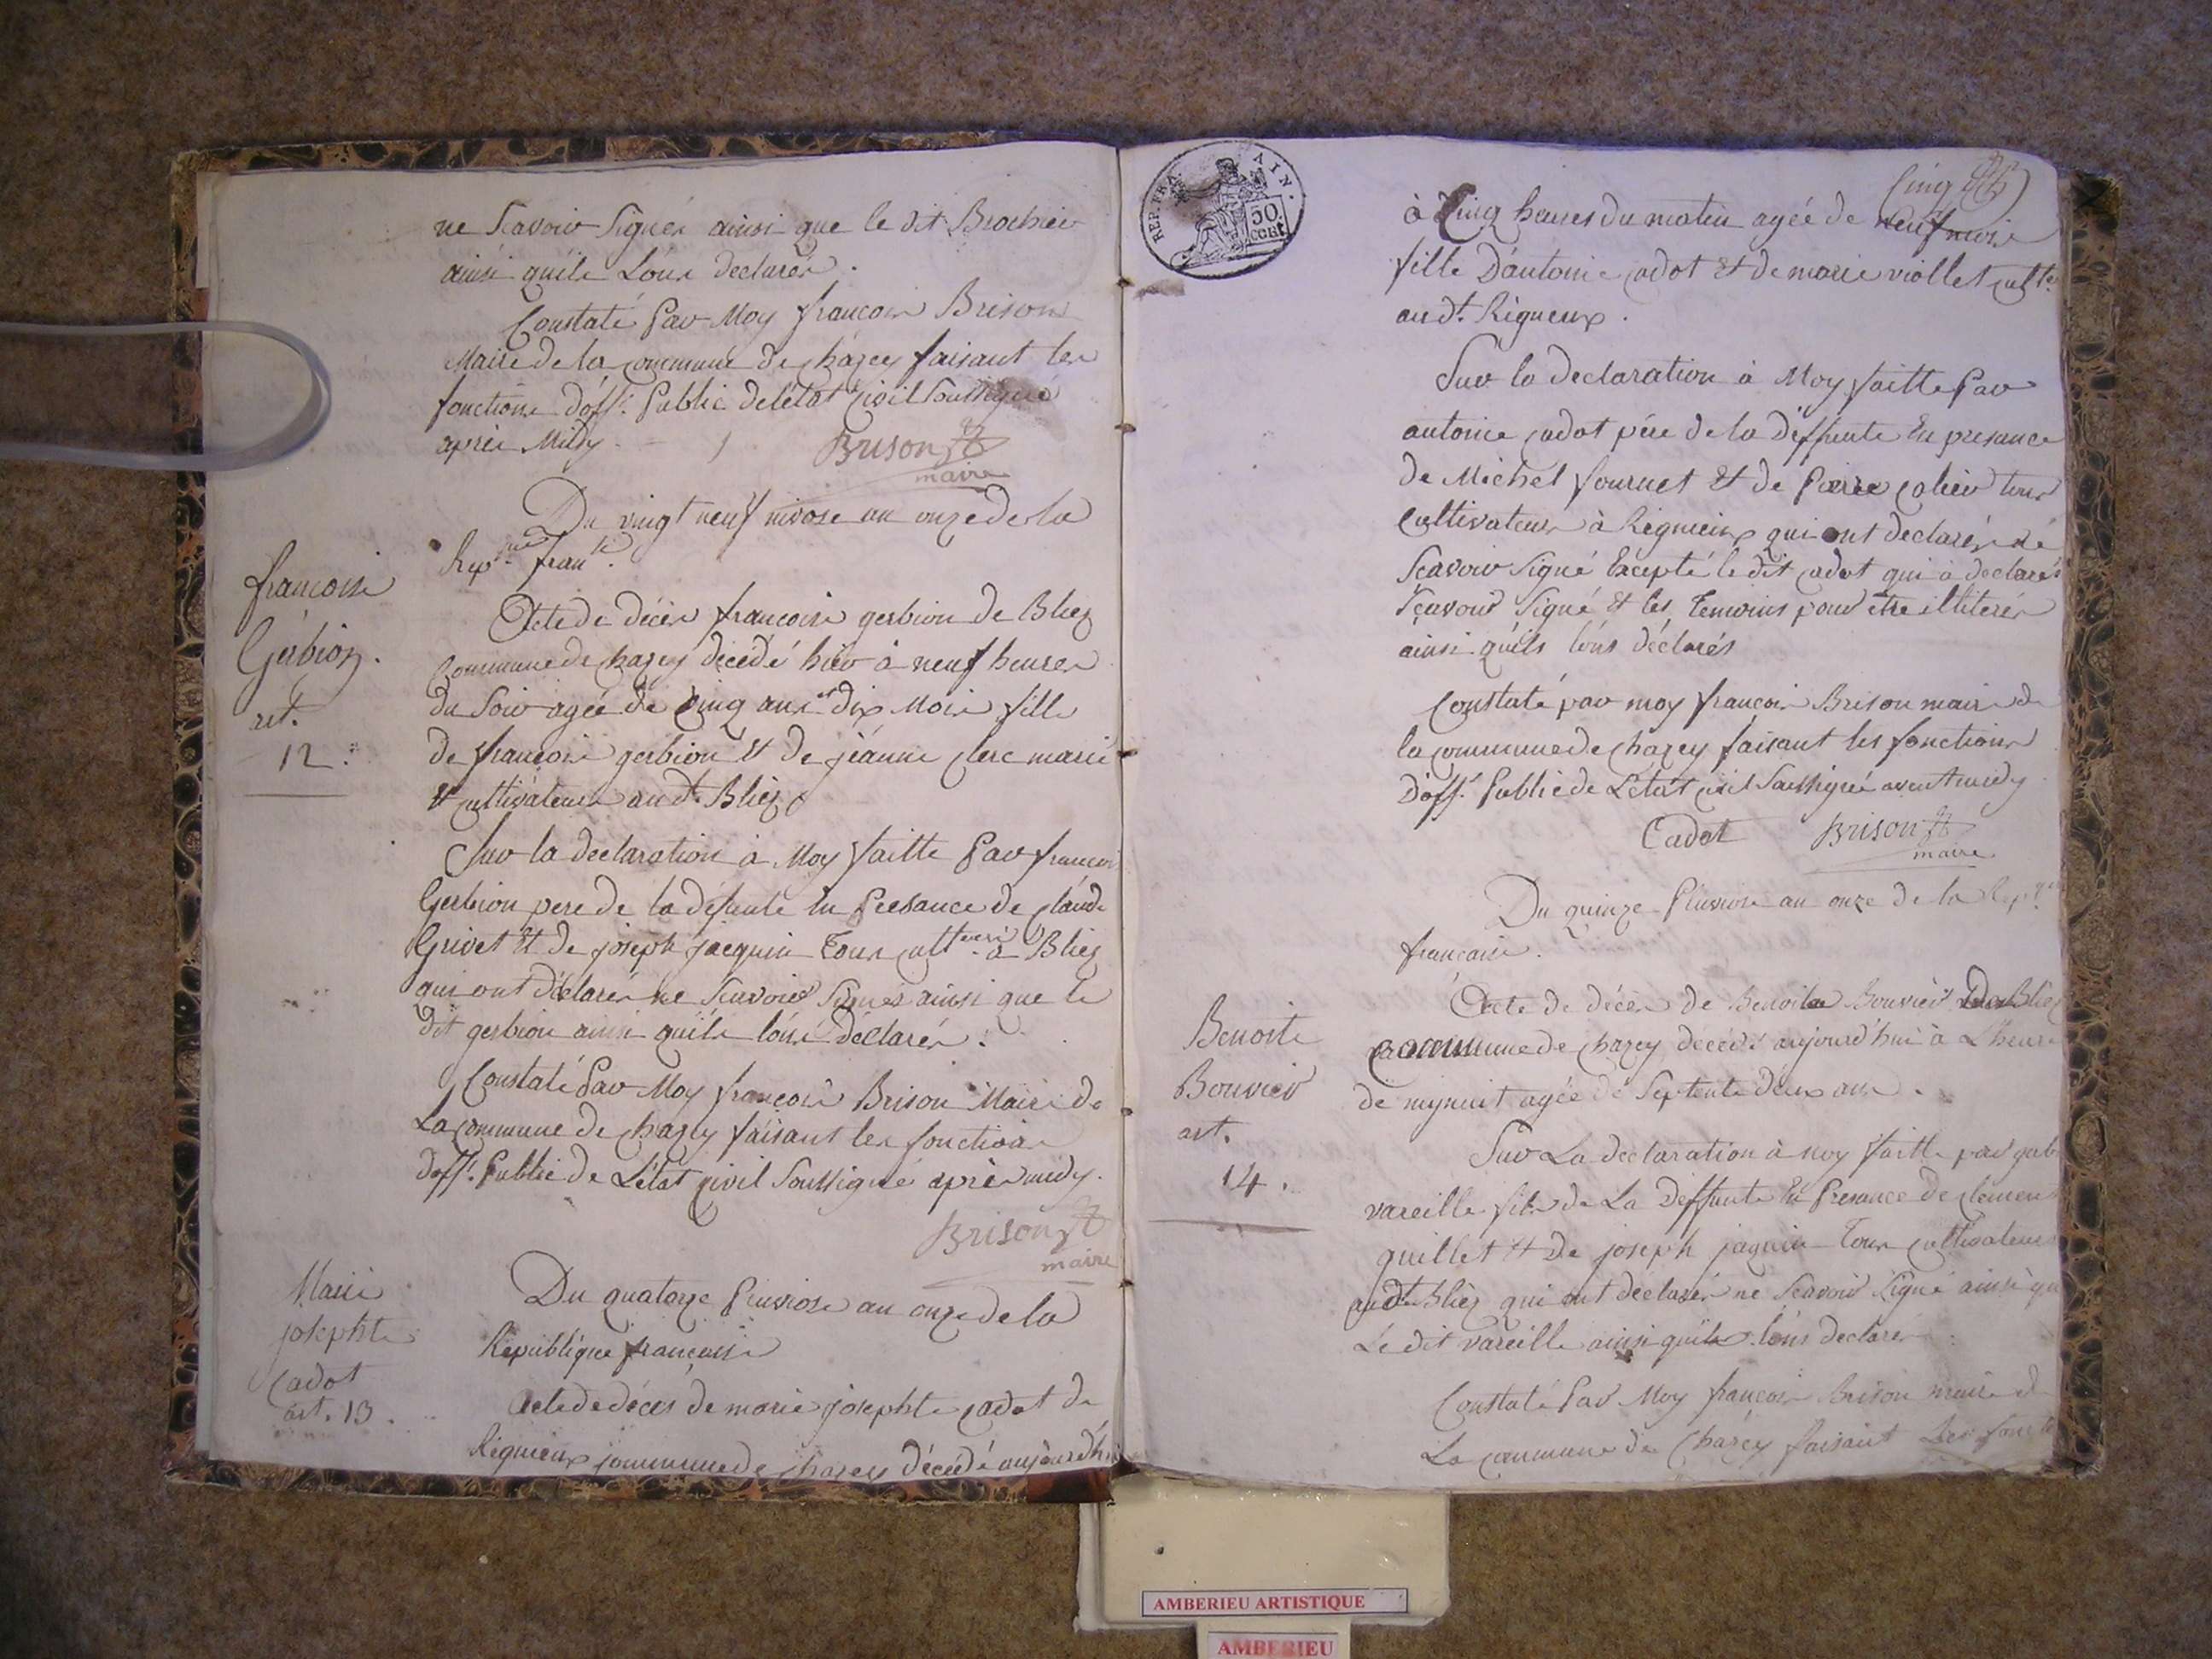 ne Scavoir Signér ainsi que le dit Brochier
ainsi quils Lóns declarés.
Constaté Par Moy françois Brison
Maire de la Commune de chazey faisant les
fonctions d'off. Public de létat Civil Soussigné
après Midy. Brison
maire
Du vingt neuf nivose an onze de la
Rep.que fran.se
françoise
Gerbion.
art.
12.
Acte de décès françoise gerbion de Bliez
Commune de chazey décédé hier à neuf heures
du Soir agée de Cinq ans et dix Mois fille
de françois gerbion et de jéanne clerc mariés
et cultivateurs au dt. Bliez
Sur la declaration à Moy faitte Par françois
Gerbion pere de la défunte En Presance de claude
Grivet et de joseph jacquin tous cult.eurs à Bliez
qui ont déclarés ne Scavoir Signés ainsi que le
dit gerbion ainsi quils lóns déclarés.
Constaté Par Moy françois Brison Maire de
La Commune de chazey faisant les fonctions
d'off. Public de L'état civil Soussigné après midy.
Brison
maire
Marie
josephte
Cadot
art. 13.
Du quatorze Pluviose an onze de la
République françoise
Acte de décès de marie josephte cadot de
Rignieux commune de chazey décédé aujourd'hui
REP. FRA. AIN.
50
CENT.
Cinq
à Cinq heures du matin agée de neuf mois
fille D'antoine cadot et de marie viollet cult.
au dt. Rigneux.
Sur la declaration à Moy faitte Par
antoine cadot père de la Deffunte En presance
de Michel fournet et de Pierre tous
Cultivateurs à Rignieux qui ont declarés né
Scavoir Signé Excepté le dit cadot qui à declarés
Sçavoir Signé et les temoins pour être illiterés
ainsi quéls lóns déclarés
Constaté par moy françois Brison maire de
la commune de chazey faisant les fonctions
D'off. Public de L'état civil Soussigné avant midy
Cadot Brison
maire
Du quinze Pluviose an onze de la Rep.
françoise.
Benoite
Bouvier
art.
14.
Acte de décès de Benoite Bouvier De Bliez
Commune de chazey décédé aujourd'hui à L'heure
de mynuit agée de Septente deux ans.
Sur La declaration à moy faitte par
vareille fils de La Deffunte En Presance de clement
guillet et de joseph jaquin tous cultivateurs
au dt. Bliez qui ont declarés ne Scavoir Signé ainsi que
Le dit vareille ainsi quils lóns declarés
Constaté Par Moy françois Brison maire de
La commune de Chazey faisant Les
AMBERIEU ARTISTIQUE
AMBERIEU